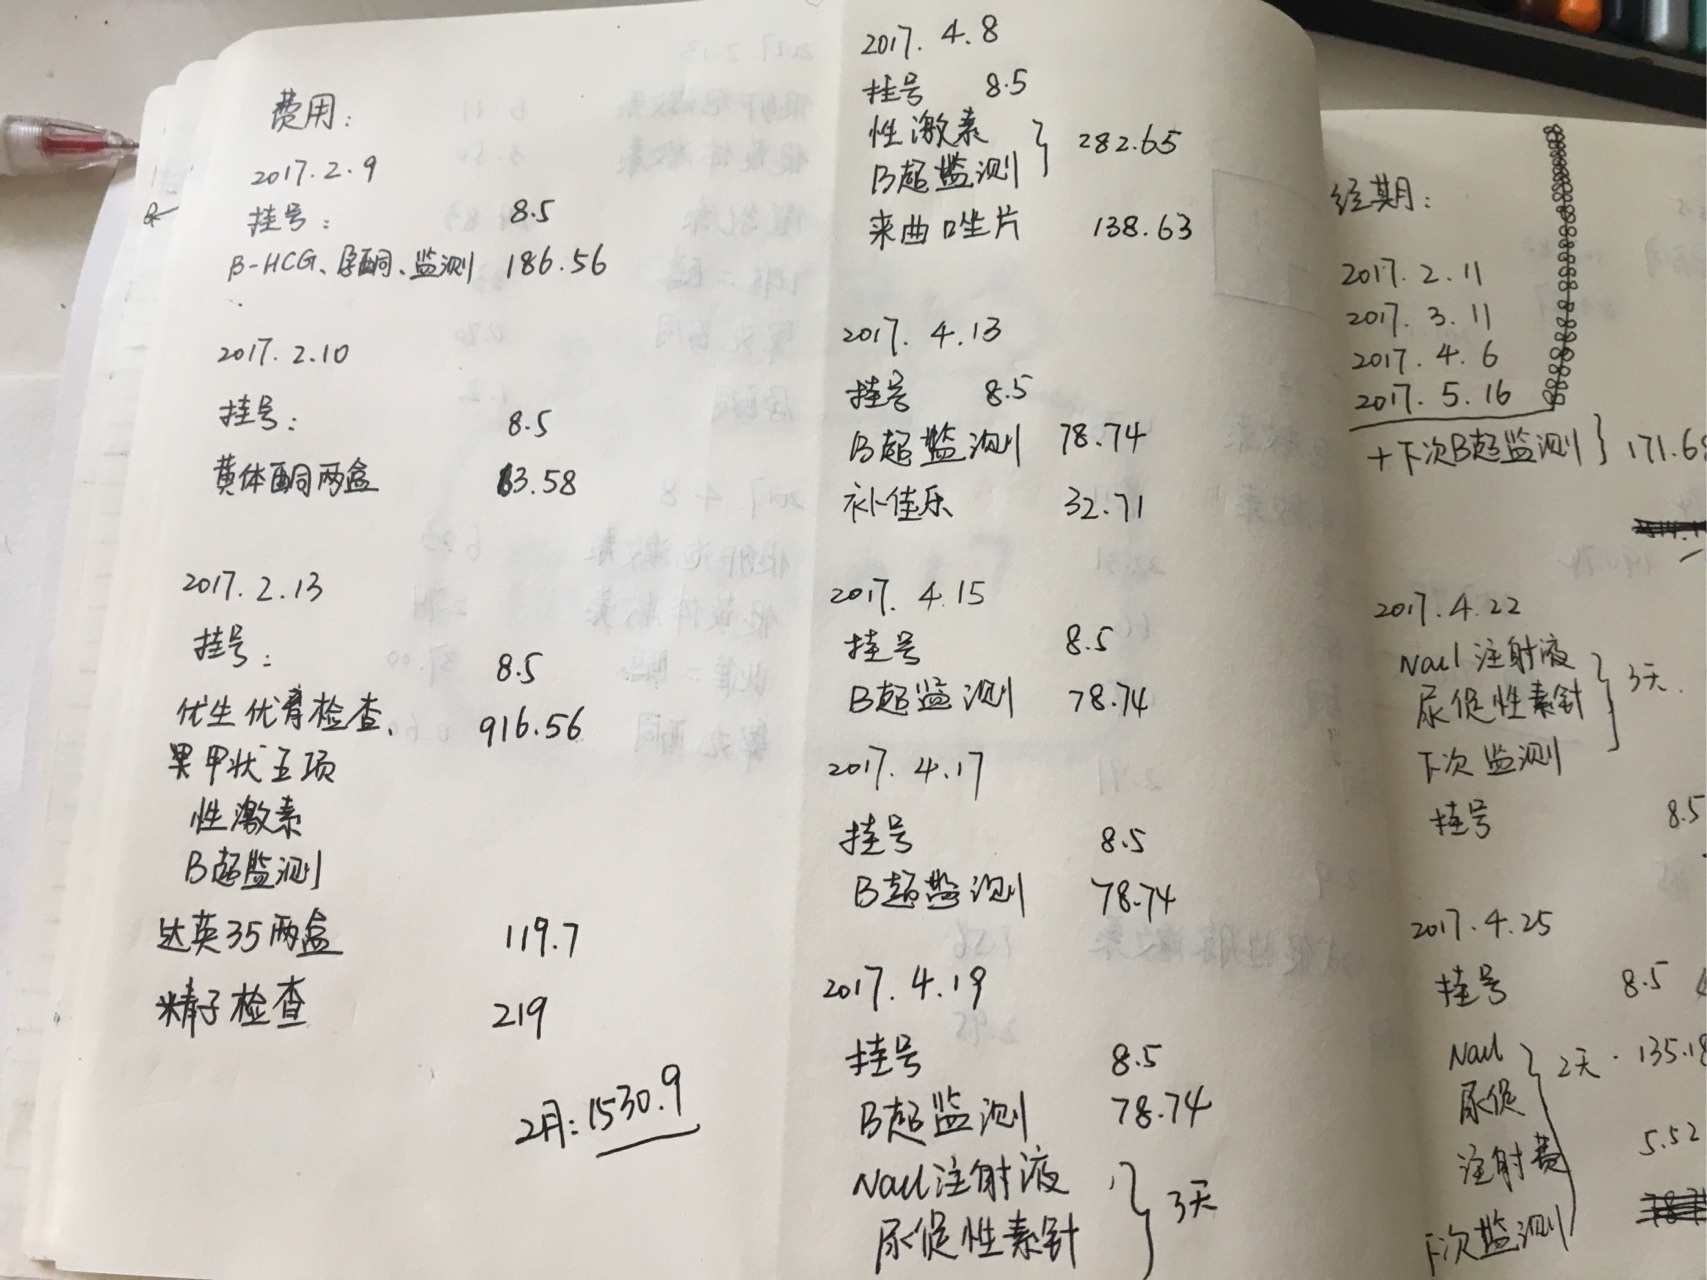 费用:
2017.2.9
挂号: 8.5
β-HCG、孕酮、监测 186.56
2017.2.10
挂号: 8.5
黄体酮两盒 63.58
2017.2.13
挂号: 8.5
优生优育检查、 916.56
甲状五项
性激素
B超监测
达英35两盒 119.7
精子检查 219
2月:1530.9
2017.4.8
挂号 8.5
性激素
B超监测 } 282.65
来曲唑片 138.63
2017.4.13
挂号 8.5
B超监测 78.74
补佳乐 32.71
2017.4.15
挂号 8.5
B超监测 78.74
2017.4.17
挂号 8.5
B超监测 78.74
2017.4.19
挂号 8.5
B超监测 78.74
Nacl注射液
尿促性素针 } 3天
经期:
2017.2.11
2017.3.11
2017.4.6
2017.5.16
+下次B超监测} 171.6
2017.4.22
Nacl注射液
尿促性素针 } 3天.
下次监测
挂号 8.5
2017.4.25
挂号 8.5
Nacl } 2天. 135.18
尿促
注射费 5.52
下次监测